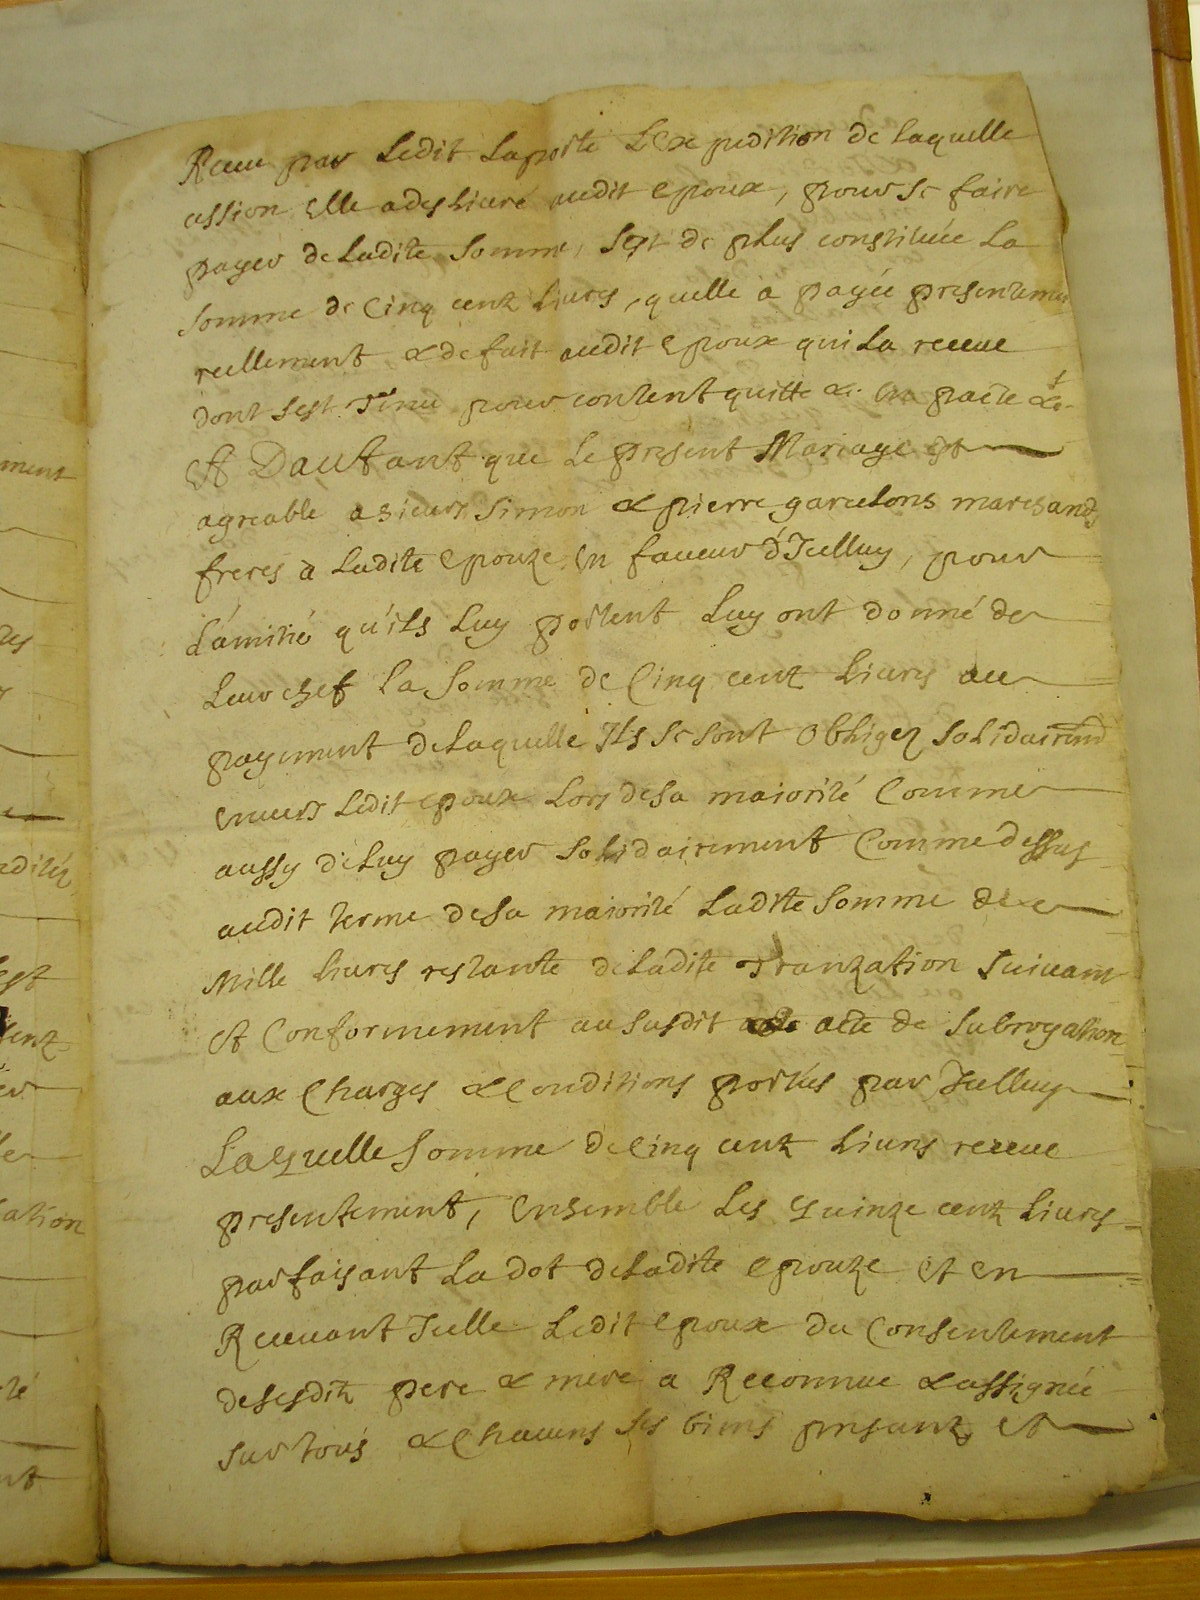 Receu par Ledit Laporte Lexpedition de laquelle
cession elle a desLiuré audit epoux, pour se faire
payer de Ladite Somme, sest de plus constituée La
somme de Cinq centz Liures, quelle à payée presentemen
reellement & de fait audit epoux qui La receue
dont sest Tenu pour content quitte &c. en pacte &c.
Et Dautant que Le present Mariage est
agreable a sieurs Simon & pierre garcelons marchandz
freres a Ladite epouze En faueur d'Icelluy, pour
L'amitié qu'ils Luy portent Luy ont donné de
Leur chef La Somme de Cinq centz Liures au
payement deLaquelle Ils se sont Obligez solidairemt
enuers Ledit epoux Lors desa maiorité Comme
aussy de Luy payer solidairement Comme dessus
audit terme desa maiorité Ladite Somme de
Mille Liures restante deLadite Tranzation Suiuant
Et Conformement au susdit acte de Subrogation
aux Charges & Conditions portées par Icelluy
Laquelle Somme de Cinq centz Liures receue
presentement, Ensemble Les Quinze centz Liures
parfaisant La dot deLadite epouze et en
Receuant Icelle Ledit epoux du Consentement
desesditz pere & mere a Reconnue & assignée
sur tous & Chacuns ses biens presantz et
ment
ation